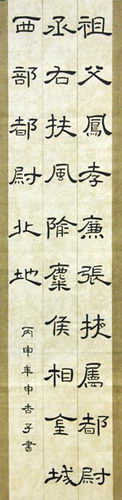 祖父鳳孝廉張掖屬都尉
丞右扶風隃麋侯相金城
西部都尉北地
丙申年申杏子書